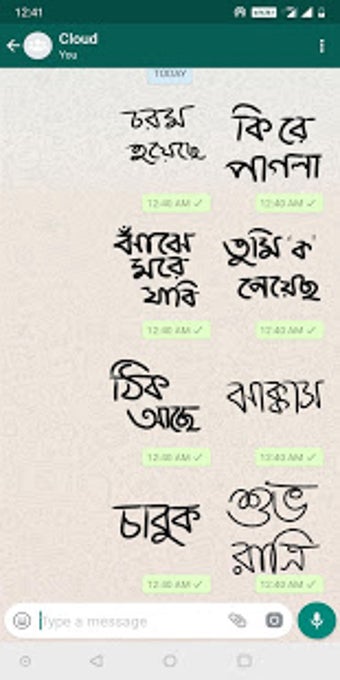 12:41
Cloud
You
TODAY
চরম
হয়েছে
কি রে
পাগলা
12:40 AM ✓
12:40 AM ✓
ঝাঁঝে
মরে
যাবি
তুমি 'ক'
পেয়েছ
12:40 AM ✓
12:40 AM ✓
ঠিক
আছে
ঝাক্কাস
12:40 AM ✓
12:40 AM ✓
চাবুক
শুভ
রাত্রি
12:40 AM ✓
12:40 AM ✓
Type a message